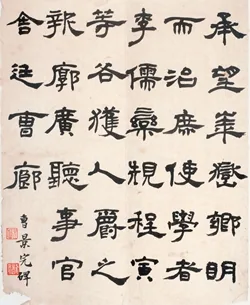 承望華嶽鄉明
而治庶使學者
李儒欒規程寅
等各獲人爵之
報廓廣聽事官
舍廷曹廊
曹景完碑